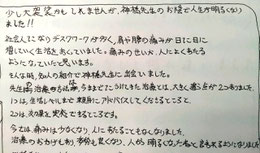 少し大袈裟かもしれませんが、神様先生のお陰で人生が明るくなり
ました!!
社会人になりデスクワークが多く、肩や腰の痛みが日に日に
増していく生活をおくっていました。痛みのせいか、人によくあたる
ようになっていたと思います。
そんな時、知人の紹介で神様先生に出会いました。
先生の治療の方法は、今までうけてきた治療とは、大きく違う点が2つありました。
1つは、生活そしてまで親身にアドバイスしてくださるところと
2つは、効果を実感できるところ。
今では痛みは少なくなり、人にあたることもなくなりました。
治療のおかげもあり姿勢も良くなり、人から明るくなったねと言われるようになりました